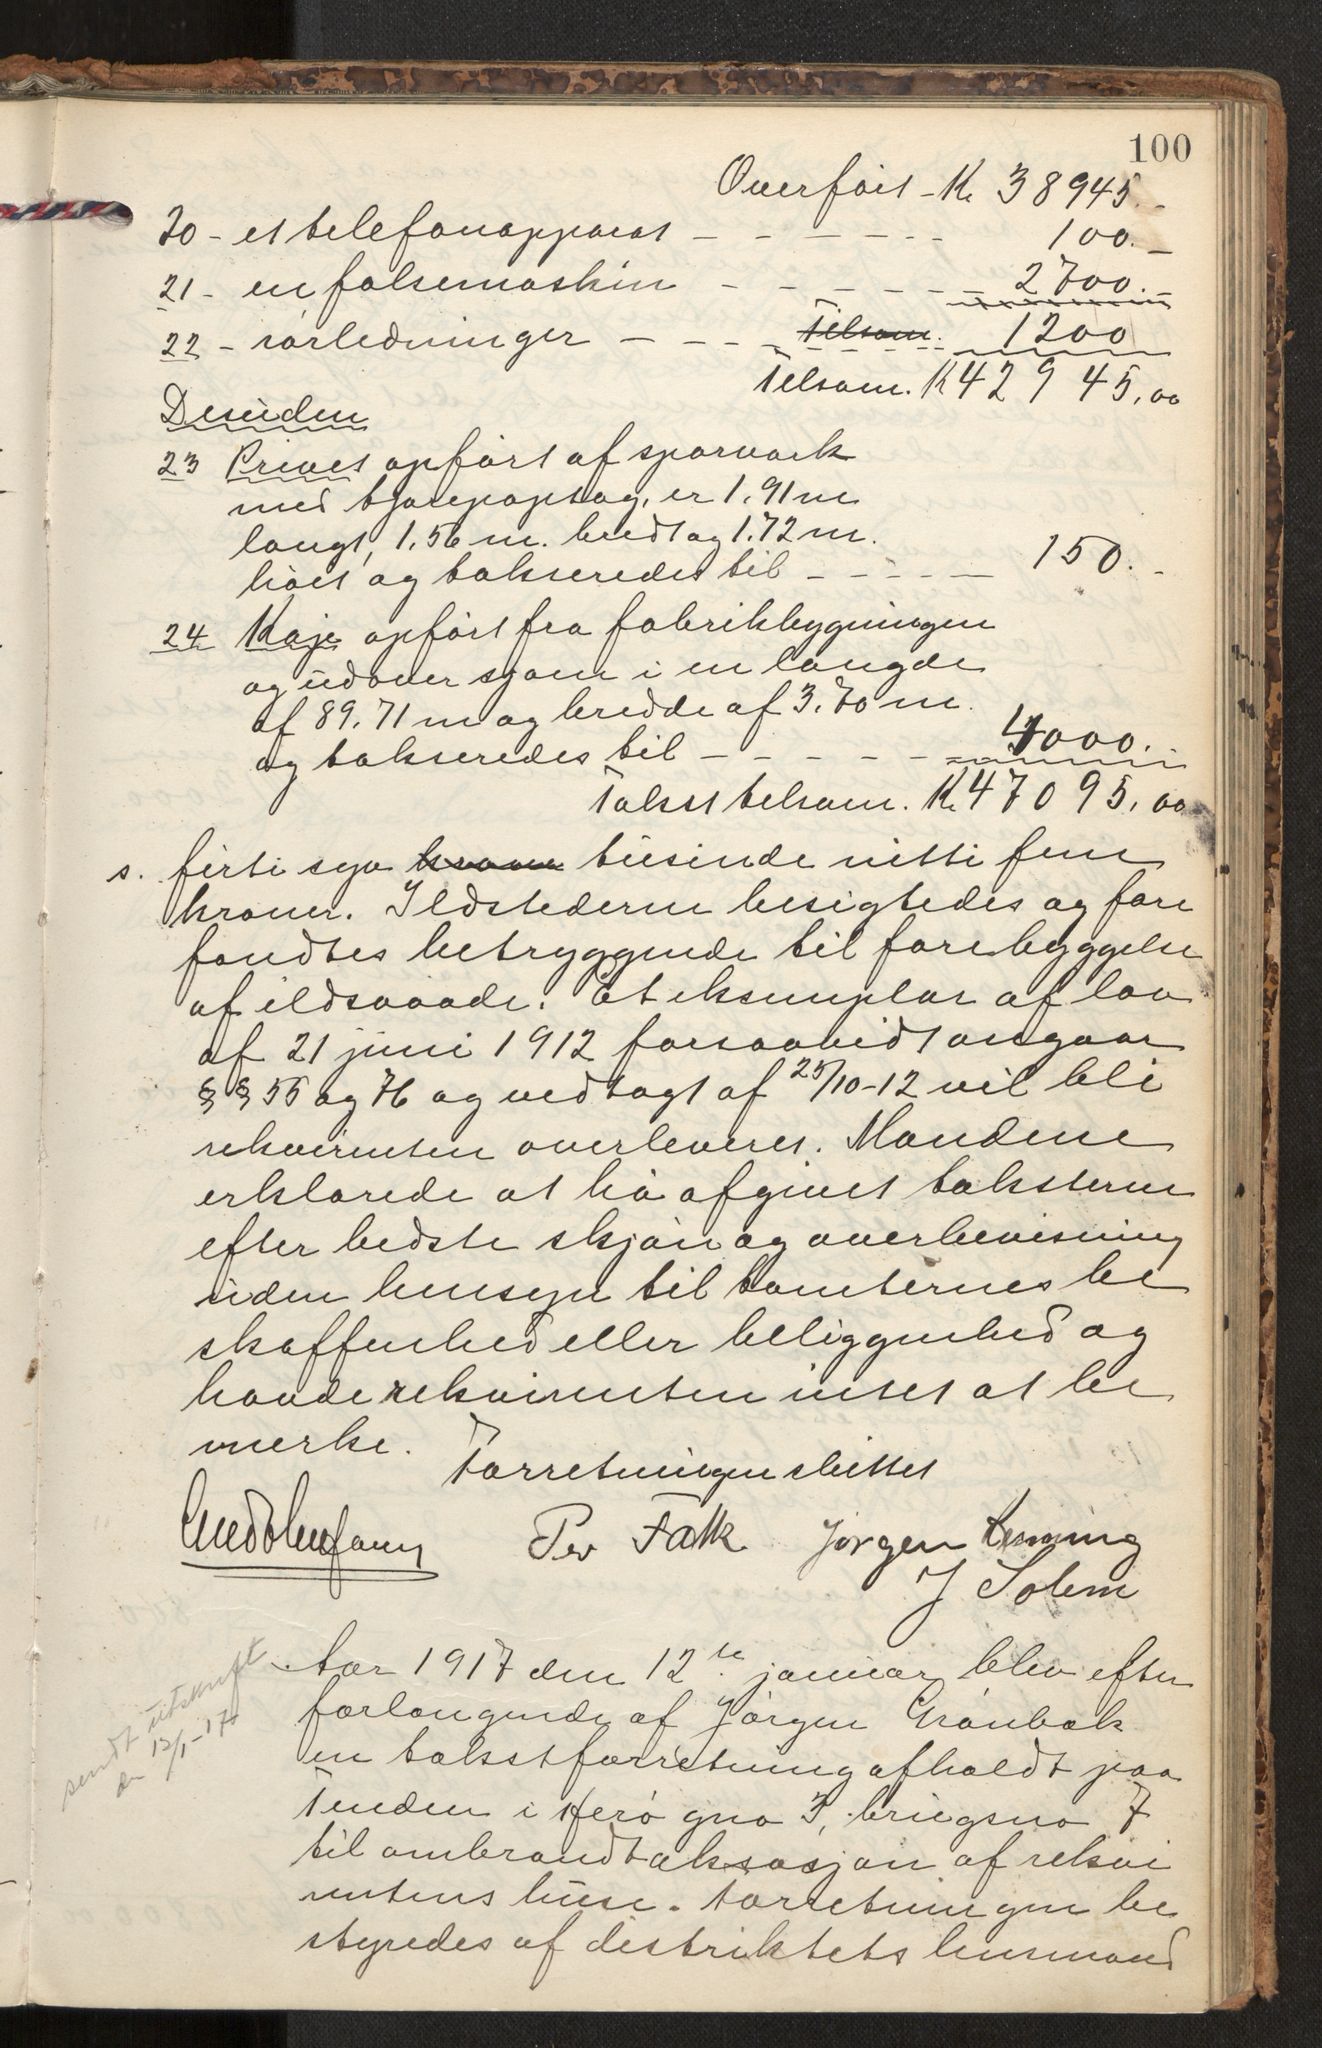 100
Overført - K. 38945.-
20 - et telefonapparat - - - - - - 100.-
21 - en falsemaskin - - - - - - 2700.-
22 - rørledninger - - - Tilsam. 1200
Tilsam. K 42945,00
Desuden
23 Privet opført af sparværk
med tjærepaptag, er 1.91 m
langt, 1.56 m. bredt og 1.72 m.
høit og takseredes til - - - - - 150.-
24 Kaje opført fra fabrikbygningen
og udover sjøen i en længde
af 89.71 m og bredde af 3.70 m.
og takseredes til - - - - - 4000.-
Takst tilsam. K. 47095,00
s. firti syv krone tusinde nitti fem
kroner. Ildstederne besigtedes og fore
fandtes betryggende til forebyggelse
af ildsvaade. Et eksemplar af lov
af 21 juni 1912 forsaavidt angaar
§ § 55 og 76 og vedtagt af 25/10-12 vil bli
rekvirenten overleveret. Mændene
erklærede at ha afgivet taksterne
efter bedste skjøn og overbevisning
uden hensyn til tomternes be
skaffenhed eller beliggenhed og
havde rekvirenten intet at be
merke.
Forretningen sluttet
Per Falk Jørgen Hemming
J Solem
Aar 1917 den 12te januar blev efter
forlangende af Jørgen Grønbæk
en takstforretning afholdt paa
Tenden i Herø gno 3, brugsno 7
til ombrandtaksasjon af rekvi
rentens huse. Forretningen be
styredes af distriktets lensmand
sendt utskrift
den 13/1-17